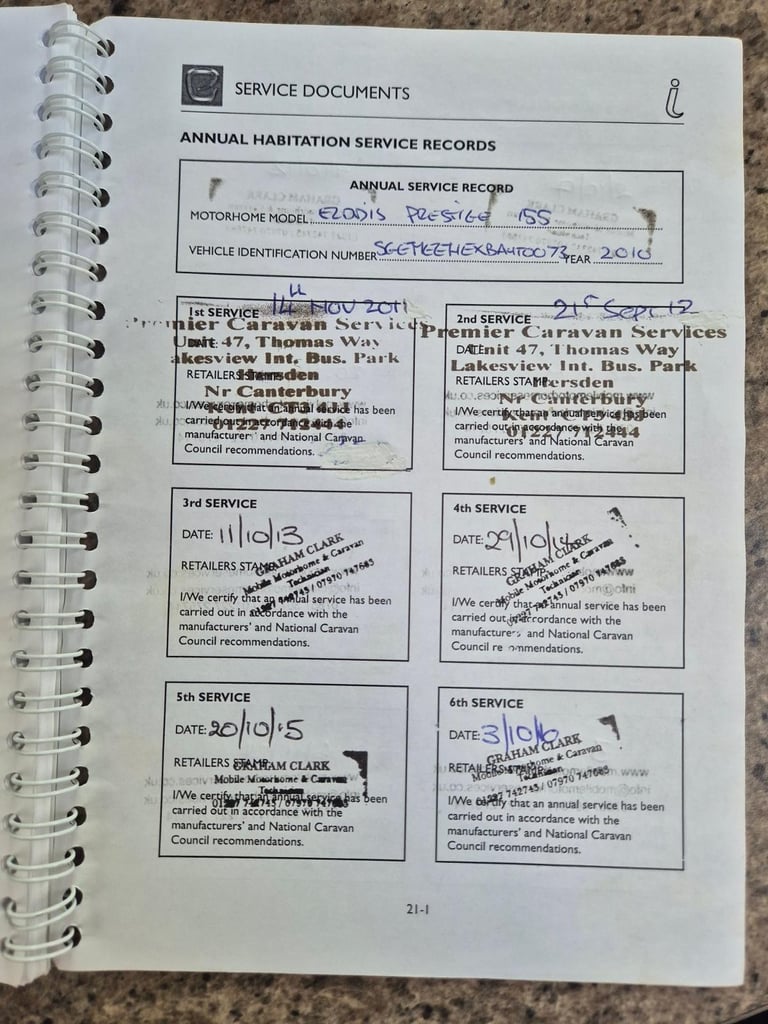 SERVICE DOCUMENTS
i
ANNUAL HABITATION SERVICE RECORDS
ANNUAL SERVICE RECORD
MOTORHOME MODEL: PRESTIGE 155
VEHICLE IDENTIFICATION NUMBER YEAR 2010
1st SERVICE 14th NOV 2011
Premier Caravan Services
Unit 47, Thomas Way
DATE:
Lakesview Int. Bus. Park
RETAILERS STAMP
Hersden
Nr Canterbury
I/We certify that an annual service has been
carried out in accordance with the
01227 712444
manufacturer' and National Caravan
Council recommendations.
2nd SERVICE 21st Sept 12
Premier Caravan Services
DATE: Unit 47, Thomas Way
Lakesview Int. Bus. Park
RETAILERS STAMP
Hersden
Nr Canterbury
I/We certify that an annual service has been
Kent
carried out in accordance with the
01227 712444
manufacturers' and National Caravan
Council recommendations.
3rd SERVICE
DATE: 11/10/13
RETAILERS STAMP
GRAHAM CLARK
Mobile Motorhome & Caravan
Technician
07970 747685
I/We certify that an annual service has been
carried out in accordance with the
manufacturers' and National Caravan
Council recommendations.
4th SERVICE
DATE: 29/10/14
RETAILERS
GRAHAM CLARK
Mobile Motorhome & Caravan
Technician
07970 747685
I/We certify that an annual service has been
carried out in accordance with the
manufacturers and National Caravan
Council recommendations.
5th SERVICE
DATE: 20/10/15
RETAILERS STAMP
GRAHAM CLARK
Mobile Motorhome & Caravan
Technician
I/We certify that an annual service has been
742745 / 07970 747685
carried out in accordance with the
manufacturers' and National Caravan
Council recommendations.
6th SERVICE
DATE: 3/10/16
GRAHAM CLARK
RETAILERS
Mobile Motorhome & Caravan
Technician
742745 / 07970 747685
I/We certify that an annual service has been
carried out in accordance with the
manufacturers' and National Caravan
Council recommendations.
21-1